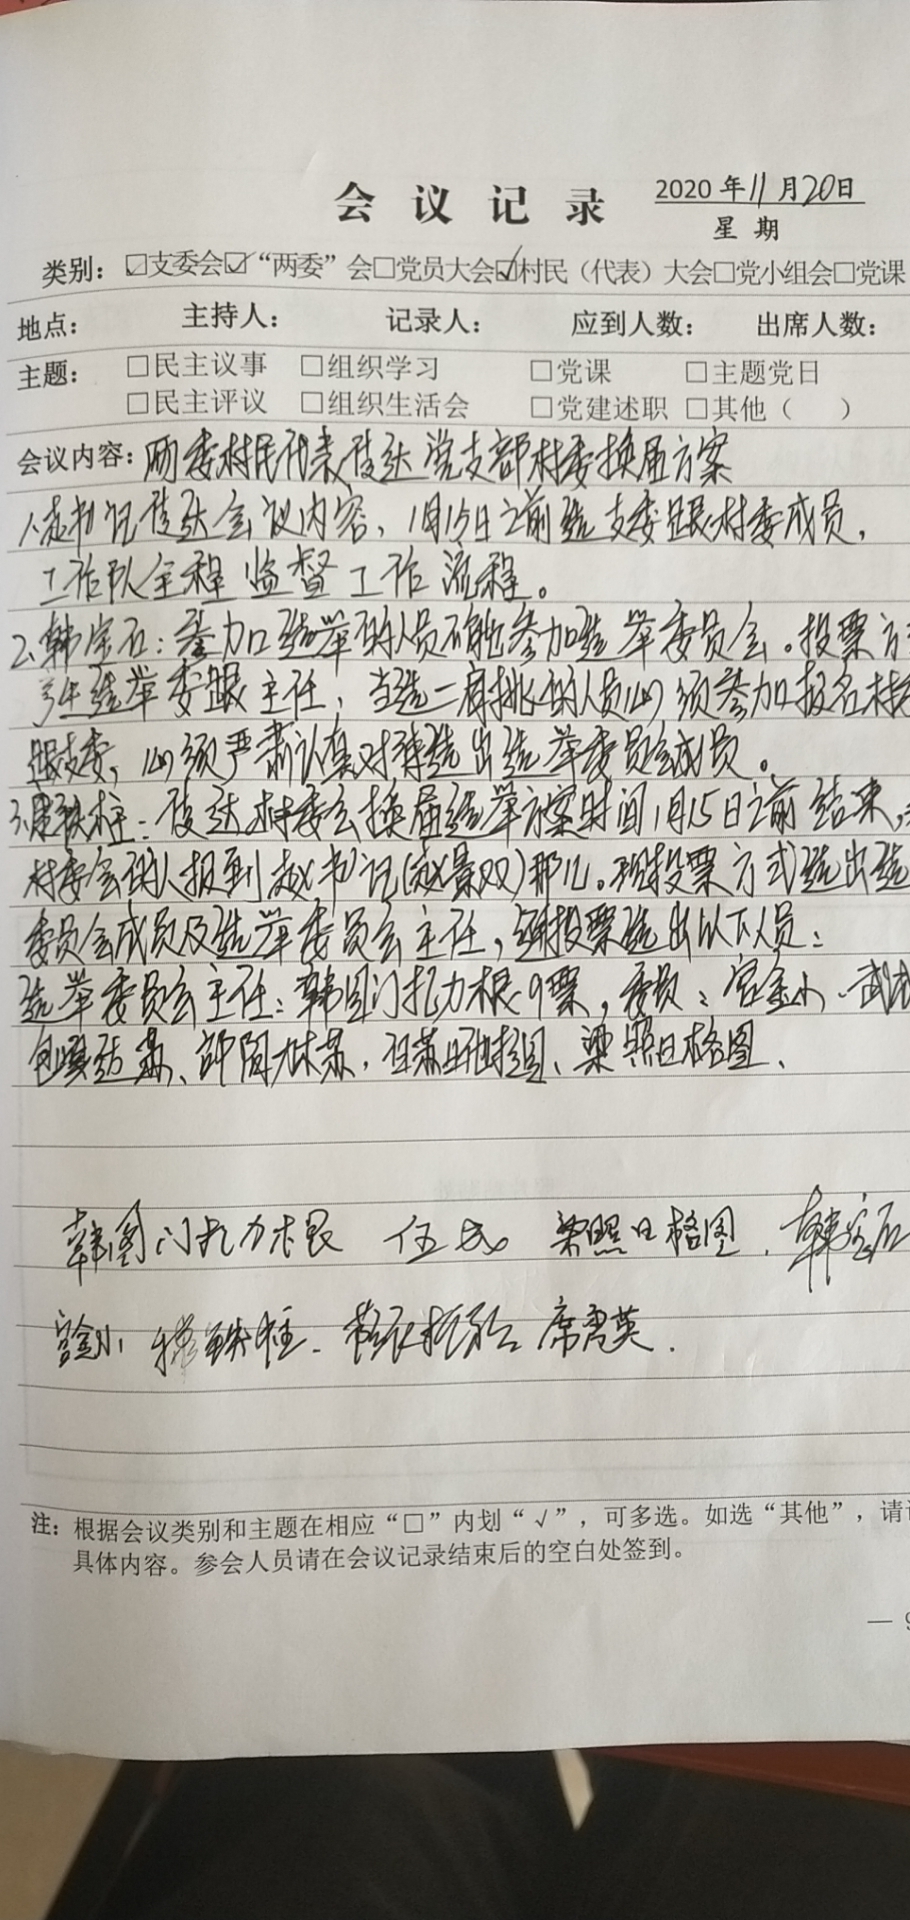 会议记录 2020年11月20日
星期
类别：☑支委会☑“两委”会□党员大会☑村民（代表）大会□党小组会□党课
地点： 主持人： 记录人： 应到人数： 出席人数：
主题： □民主议事 □组织学习 □党课 □主题党日
□民主评议 □组织生活会 □党建述职 □其他（ ）
会议内容：两委村民代表传达党支部村委换届方案
书记传达会议内容，1月15日之前选支委跟村委成员，
工作队全程监督工作流程。
2、韩宝石：参加选举的人员不能参加选举委员会。投票方
选举委跟主任，当选 的人员必须参加报名村
跟支委，必须严肃认真对待选出选举委员会成员。
3、铁柱：传达村委会换届选举方案时间1月15日之前结束，
村委会的人报到赵书记（赵景双）那儿。现投票方式选出选
委员会成员及选举委员会主任，通投票选出以下人员：
选举委员会主任：韩图门扎力根9票，委员：宫金小、武
包 苏、 木苏， 图、梁照日格图、
韩图门扎力根 伍 梁照日格图 . 韩宝石
宫金小 铁柱 席 英 .
注：根据会议类别和主题在相应“□”内划“√”，可多选。如选“其他”，请
具体内容。参会人员请在会议记录结束后的空白处签到。
— 9